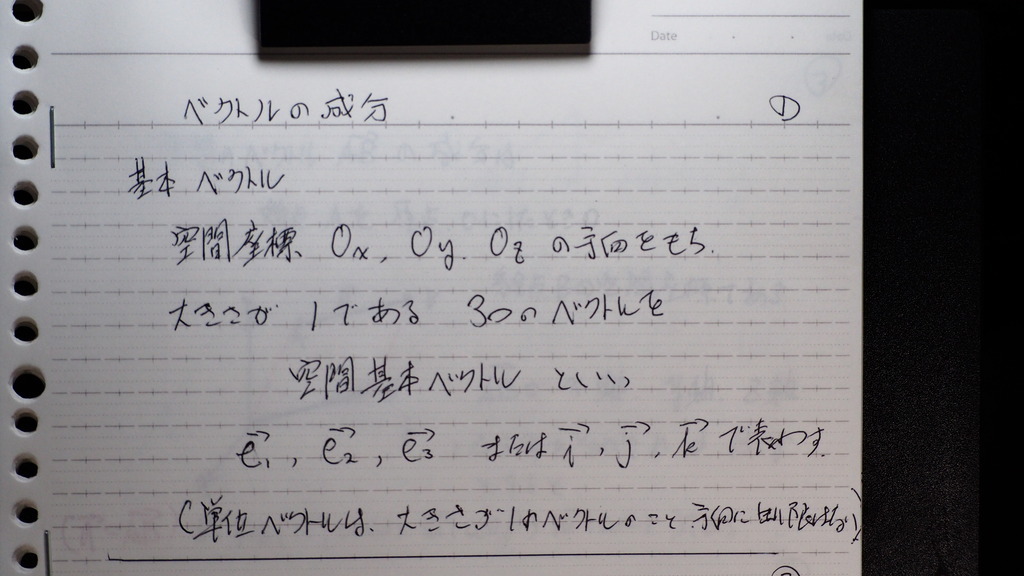 Date
ベクトルの成分 ①
基本ベクトル
空間座標 Ox, Oy, Oz の方向をもち、
大きさが 1である 3つのベクトルを
空間基本ベクトル といい
e₁→, e₂→, e₃→ または i→, j→, k→ で表わす。
(単位ベクトルは、大きさが1のベクトルのこと 方向に制限はない)